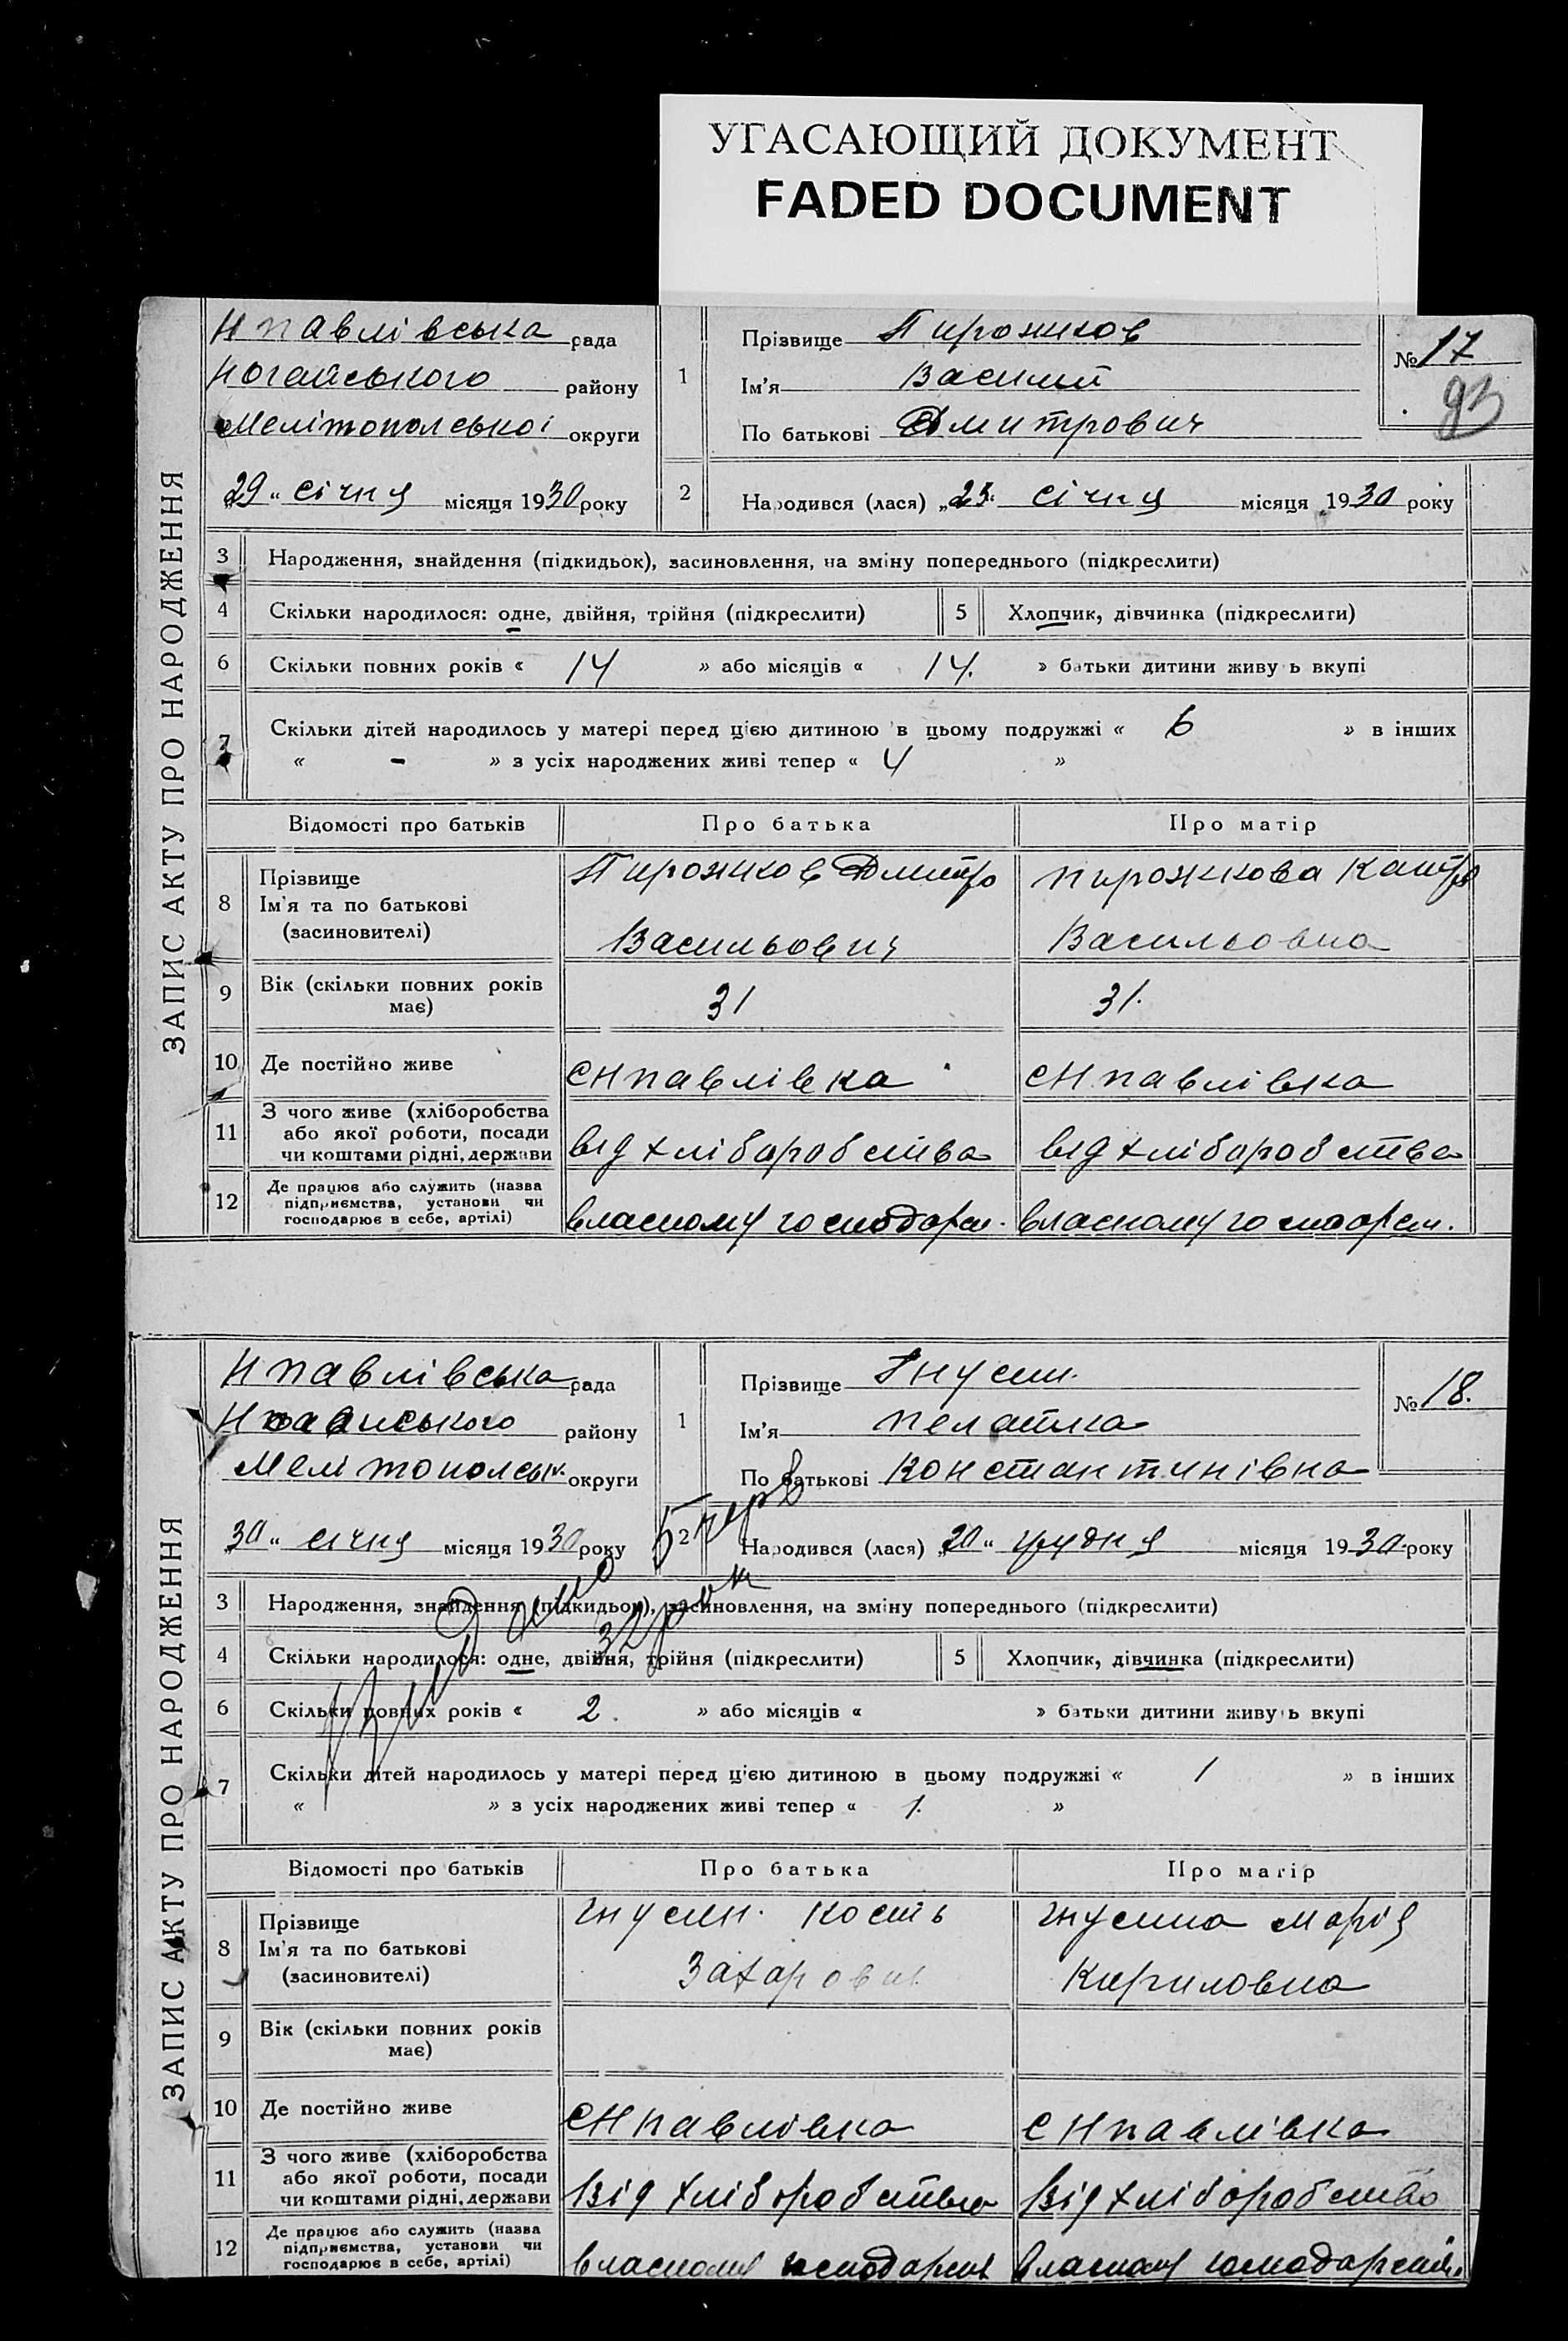 УГАСАЮЩИЙ ДОКУМЕНТ
FADED DOCUMENT
ЗАПИС АКТУ ПРО НАРОДЖЕННЯ
Нпавлівська рада
Ногайського району
Мелітопольської округи
„29“ січня місяця 1930 року
1
Прізвище Пирожков
Ім'я Василий
По батькові Дмитрович
№ 17
93
2
Народився (лася) „25“ січня місяця 1930 року
3 Народження, знайдення (підкидьок), засиновлення, на зміну попереднього (підкреслити)
4 Скільки народилося: одне, двійня, трійня (підкреслити) 5 Хлопчик, дівчинка (підкреслити)
6 Скільки повних років « 14 » або місяців « 14. » батьки дитини живу ь вкупі
7 Скільки дітей народилось у матері перед цією дитиною в цьому подружжі « 6 » в інших
« - » з усіх народжених живі тепер « 4 »
Відомості про батьків Про батька Про матір
8 Прізвище Ім'я та по батькові (засиновителі)
Пирожков Дмитро
Васильович
пирожкова Катр
Васильовна
9 Вік (скільки повних років має) 31 31.
10 Де постійно живе снпавлівка снпавлівка
11 З чого живе (хліборобства або якої роботи, посади чи коштами рідні, держави від хліборобства від хліборобства
12 Де працює або служить (назва підприємства, установи чи господарює в себе, артілі) власному господарст. власному госпоарст.
ЗАПИС АКТУ ПРО НАРОДЖЕННЯ
Нпавлівська рада
району
Мелітопольськ. округи
„30“ січня місяця 1930 року
1
Прізвище Гнусин.
Ім'я
По батькові Константинівна
№ 18.
2
Народився (лася) „20“ грудня місяця 1930 року
3 Народження, знайдення (підкидьок), засиновлення, на зміну попереднього (підкреслити)
4 Скільки народилося: одне, двійня, трійня (підкреслити) 5 Хлопчик, дівчинка (підкреслити)
6 Скільки повних років « 2. » або місяців « » батьки дитини живу ь вкупі
7 Скільки дітей народилось у матері перед цією дитиною в цьому подружжі « 1 » в інших
« » з усіх народжених живі тепер « 1. »
Відомості про батьків Про батька Про матір
8 Прізвище Ім'я та по батькові (засиновителі)
гнусин. Кость
Захарович
гнусина Марія
Кириловна
9 Вік (скільки повних років має)
10 Де постійно живе снпавлівка снпавлівка
11 З чого живе (хліборобства або якої роботи, посади чи коштами рідні, держави від хліборобства від хліборобства
12 Де працює або служить (назва підприємства, установи чи господарює в себе, артілі) власному господарст власному господарстві.